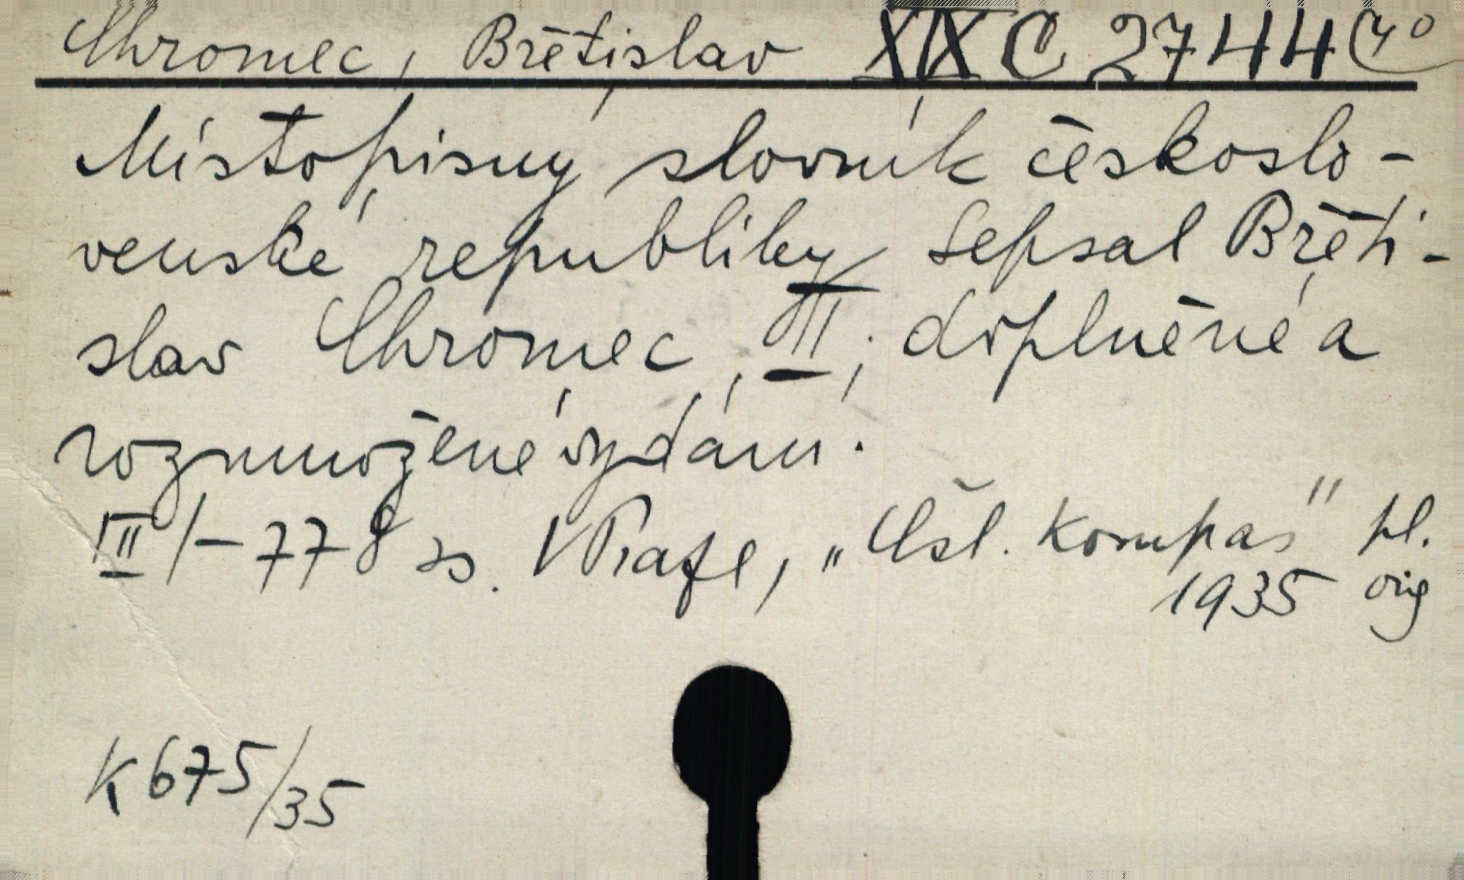 Chromec, Břetislav XIX C 2744 (4°
Místopisný slovník českoslo-
venské republiky Sepsal Břeti-
slav Chromec, III, doplněné a
rozmnožené vydání.
III/-778 ss. V Praze, „Čsl. Kompas" pl.
1935 orig
K 675/35